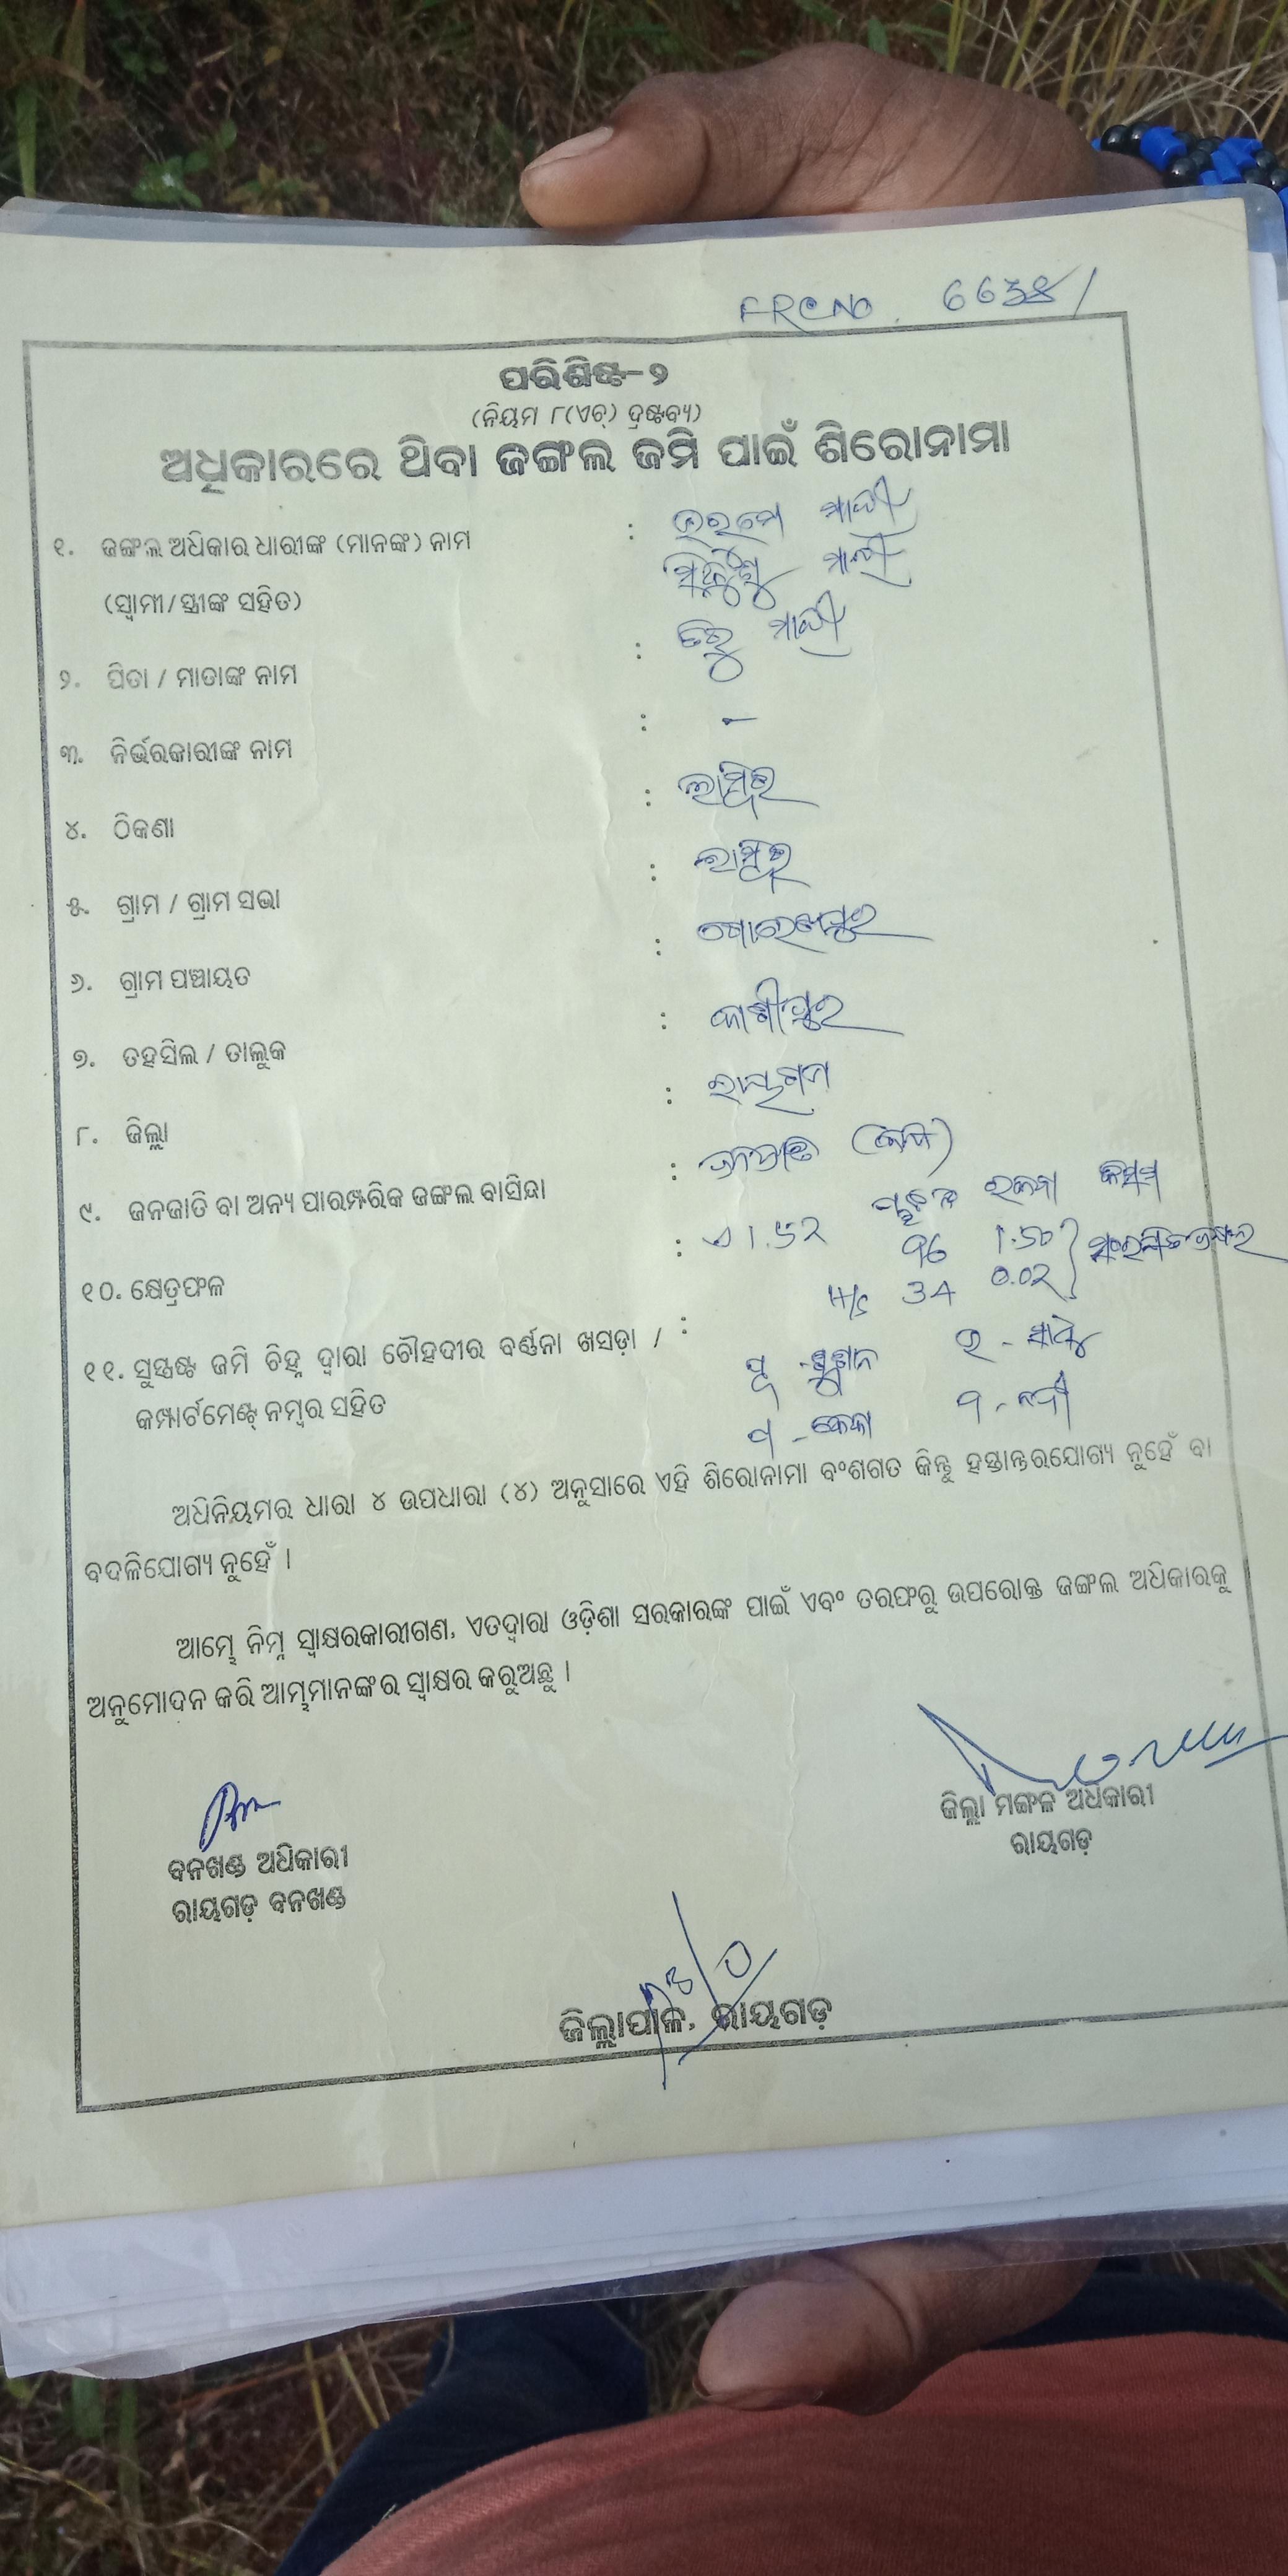 FRC NO. 6638/
ପରିଶିଷ୍ଟ-୨
(ନିୟମ ୮(ଏଚ୍) ଦ୍ରଷ୍ଟବ୍ୟ)
ଅଧିକାରରେ ଥିବା ଜଙ୍ଗଲ ଜମି ପାଇଁ ଶିରୋନାମା
୧. ଜଙ୍ଗଲ ଅଧିକାର ଧାରୀଙ୍କ (ମାନଙ୍କ) ନାମ : ମାଝୀ
(ସ୍ୱାମୀ/ସ୍ତ୍ରୀଙ୍କ ସହିତ) ମାଝୀ
୨. ପିତା / ମାତାଙ୍କ ନାମ : ମାଝୀ
୩. ନିର୍ଭରକାରୀଙ୍କ ନାମ : -
୪. ଠିକଣା :
୫. ଗ୍ରାମ / ଗ୍ରାମ ସଭା :
୬. ଗ୍ରାମ ପଞ୍ଚାୟତ : ଗୋରଖପୁର
୭. ତହସିଲ / ତାଲୁକ : କାଶୀପୁର
୮. ଜିଲ୍ଲା : ରାୟଗଡା
୯. ଜନଜାତି ବା ଅନ୍ୟ ପାରମ୍ପରିକ ଜଙ୍ଗଲ ବାସିନ୍ଦା : ଜନଜାତି
୧୦. କ୍ଷେତ୍ରଫଳ : ଏ ୧.୫୨ ପ୍ଲଟ ରକବା କିସମ
୧.୫୦
H/S 34 ୦.୦୨
୧୧. ସୁସ୍ପଷ୍ଟ ଜମି ଚିହ୍ନ ଦ୍ୱାରା ଚୌହଦୀର ବର୍ଣ୍ଣନା ଖସଡ଼ା / :
କମ୍ପାର୍ଟମେଣ୍ଟ୍ ନମ୍ବର ସହିତ
ଅଧିନିୟମର ଧାରା ୪ ଉପଧାରା (୪) ଅନୁସାରେ ଏହି ଶିରୋନାମା ବଂଶଗତ କିନ୍ତୁ ହସ୍ତାନ୍ତରଯୋଗ୍ୟ ନୁହେଁ ବା
ବଦଳିଯୋଗ୍ୟ ନୁହେଁ ।
ଆମ୍ଭେ ନିମ୍ନ ସ୍ୱାକ୍ଷରକାରୀଗଣ, ଏତଦ୍ୱାରା ଓଡ଼ିଶା ସରକାରଙ୍କ ପାଇଁ ଏବଂ ତରଫରୁ ଉପରୋକ୍ତ ଜଙ୍ଗଲ ଅଧିକାରକୁ
ଅନୁମୋଦନ କରି ଆମ୍ଭମାନଙ୍କର ସ୍ୱାକ୍ଷର କରୁଅଛୁ ।
ଜିଲ୍ଲା ମଙ୍ଗଳ ଅଧିକାରୀ
ରାୟଗଡ଼
ବନଖଣ୍ଡ ଅଧିକାରୀ
ରାୟଗଡ଼ ବନଖଣ୍ଡ
ଜିଲ୍ଲାପାଳ, ରାୟଗଡ଼